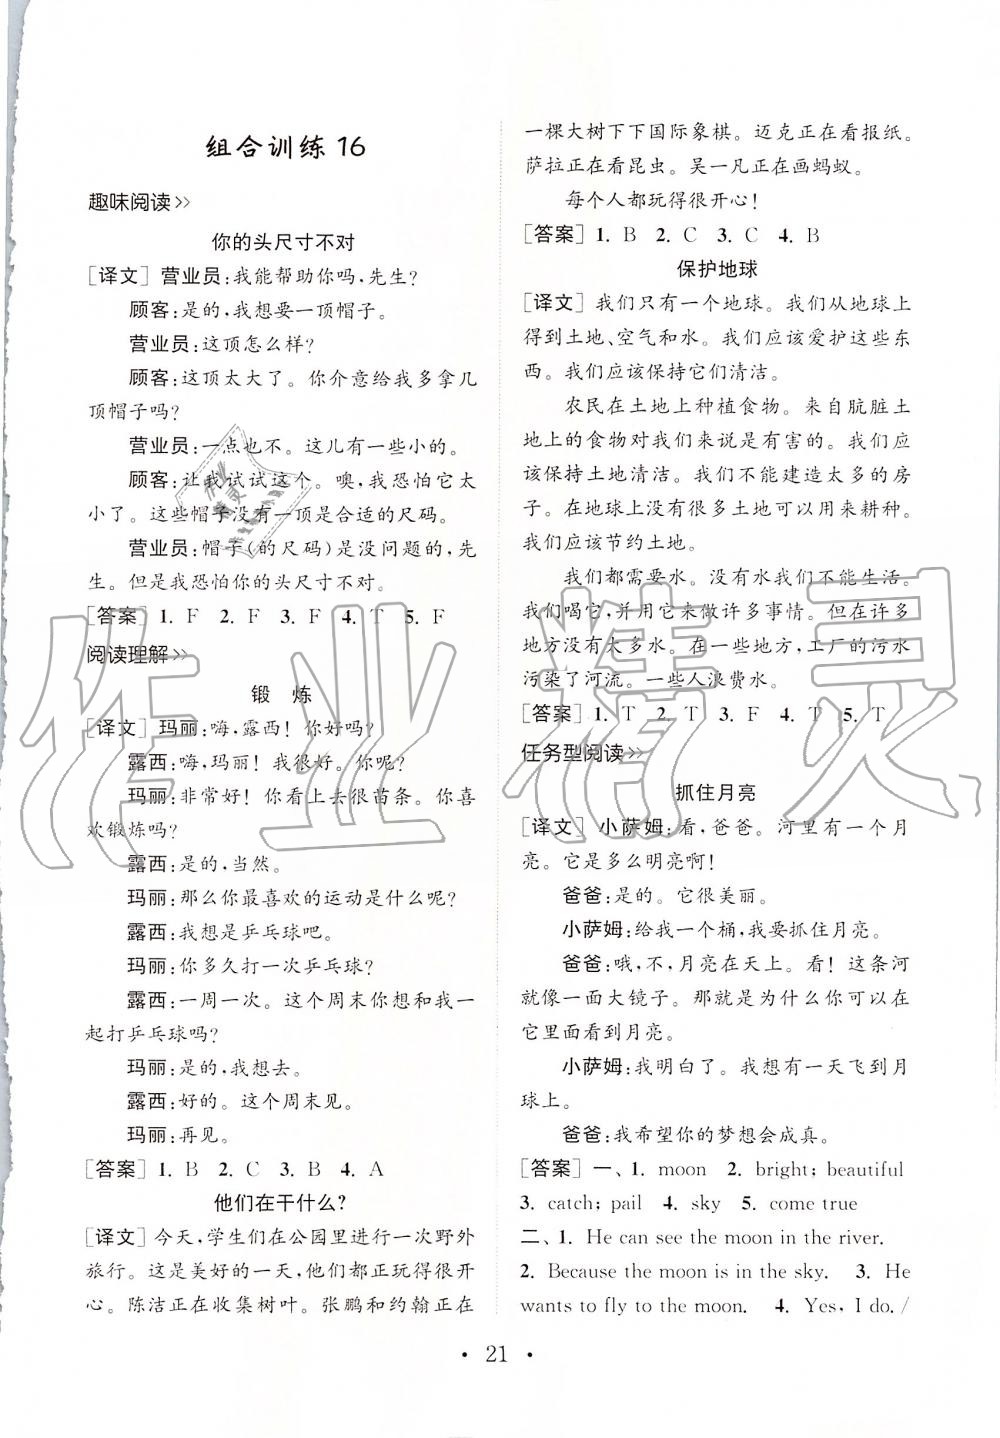 组合训练 16
趣味阅读>>
你的头尺寸不对
[译文] 营业员:我能帮助你吗,先生?
顾客:是的,我想要一顶帽子。
营业员:这顶怎么样?
顾客:这顶太大了。你介意给我多拿几
顶帽子吗?
营业员:一点也不。这儿有一些小的。
顾客:让我试试这个。噢,我恐怕它太
小了。这些帽子没有一顶是合适的尺码。
营业员:帽子(的尺码)是没问题的,先
生。但是我恐怕你的头尺寸不对。
[答案] 1. F 2. F 3. F 4. T 5. F
阅读理解>>
锻 炼
[译文] 玛丽:嗨,露西!你好吗?
露西:嗨,玛丽!我很好。你呢?
玛丽:非常好!你看上去很苗条。你喜
欢锻炼吗?
露西:是的,当然。
玛丽:那么你最喜欢的运动是什么呢?
露西:我想是乒乓球吧。
玛丽:你多久打一次乒乓球?
露西:一周一次。这个周末你想和我一
起打乒乓球吗?
玛丽:是的,我想去。
露西:好的。这个周末见。
玛丽:再见。
[答案] 1. B 2. C 3. B 4. A
他们在干什么?
[译文] 今天,学生们在公园里进行一次野外
旅行。这是美好的一天,他们都正玩得很开
心。陈洁正在收集树叶。张鹏和约翰正在
一棵大树下下国际象棋。迈克正在看报纸。
萨拉正在看昆虫。吴一凡正在画蚂蚁。
每个人都玩得很开心!
[答案] 1. B 2. C 3. C 4. B
保护地球
[译文] 我们只有一个地球。我们从地球上
得到土地、空气和水。我们应该爱护这些东
西。我们应该保持它们清洁。
农民在土地上种植食物。来自肮脏土
地上的食物对我们来说是有害的。我们应
该保持土地清洁。我们不能建造太多的房
子。在地球上没有很多土地可以用来耕种。
我们应该节约土地。
我们都需要水。没有水我们不能生活。
我们喝它,并用它来做许多事情。但在许多
地方没有太多水。在一些地方,工厂的污水
污染了河流。一些人浪费水。
[答案] 1. T 2. T 3. F 4. T 5. T
任务型阅读>>
抓住月亮
[译文] 小萨姆:看,爸爸。河里有一个月
亮。它是多么明亮啊!
爸爸:是的。它很美丽。
小萨姆:给我一个桶,我要抓住月亮。
爸爸:哦,不,月亮在天上。看!这条河
就像一面大镜子。那就是为什么你可以在
它里面看到月亮。
小萨姆:我明白了。我想有一天飞到月
球上。
爸爸:我希望你的梦想会成真。
[答案] 一、1. moon 2. bright; beautiful
3. catch; pail 4. sky 5. come true
二、1. He can see the moon in the river.
2. Because the moon is in the sky. 3. He
wants to fly to the moon. 4. Yes, I do. /
• 21 •
作业精灵